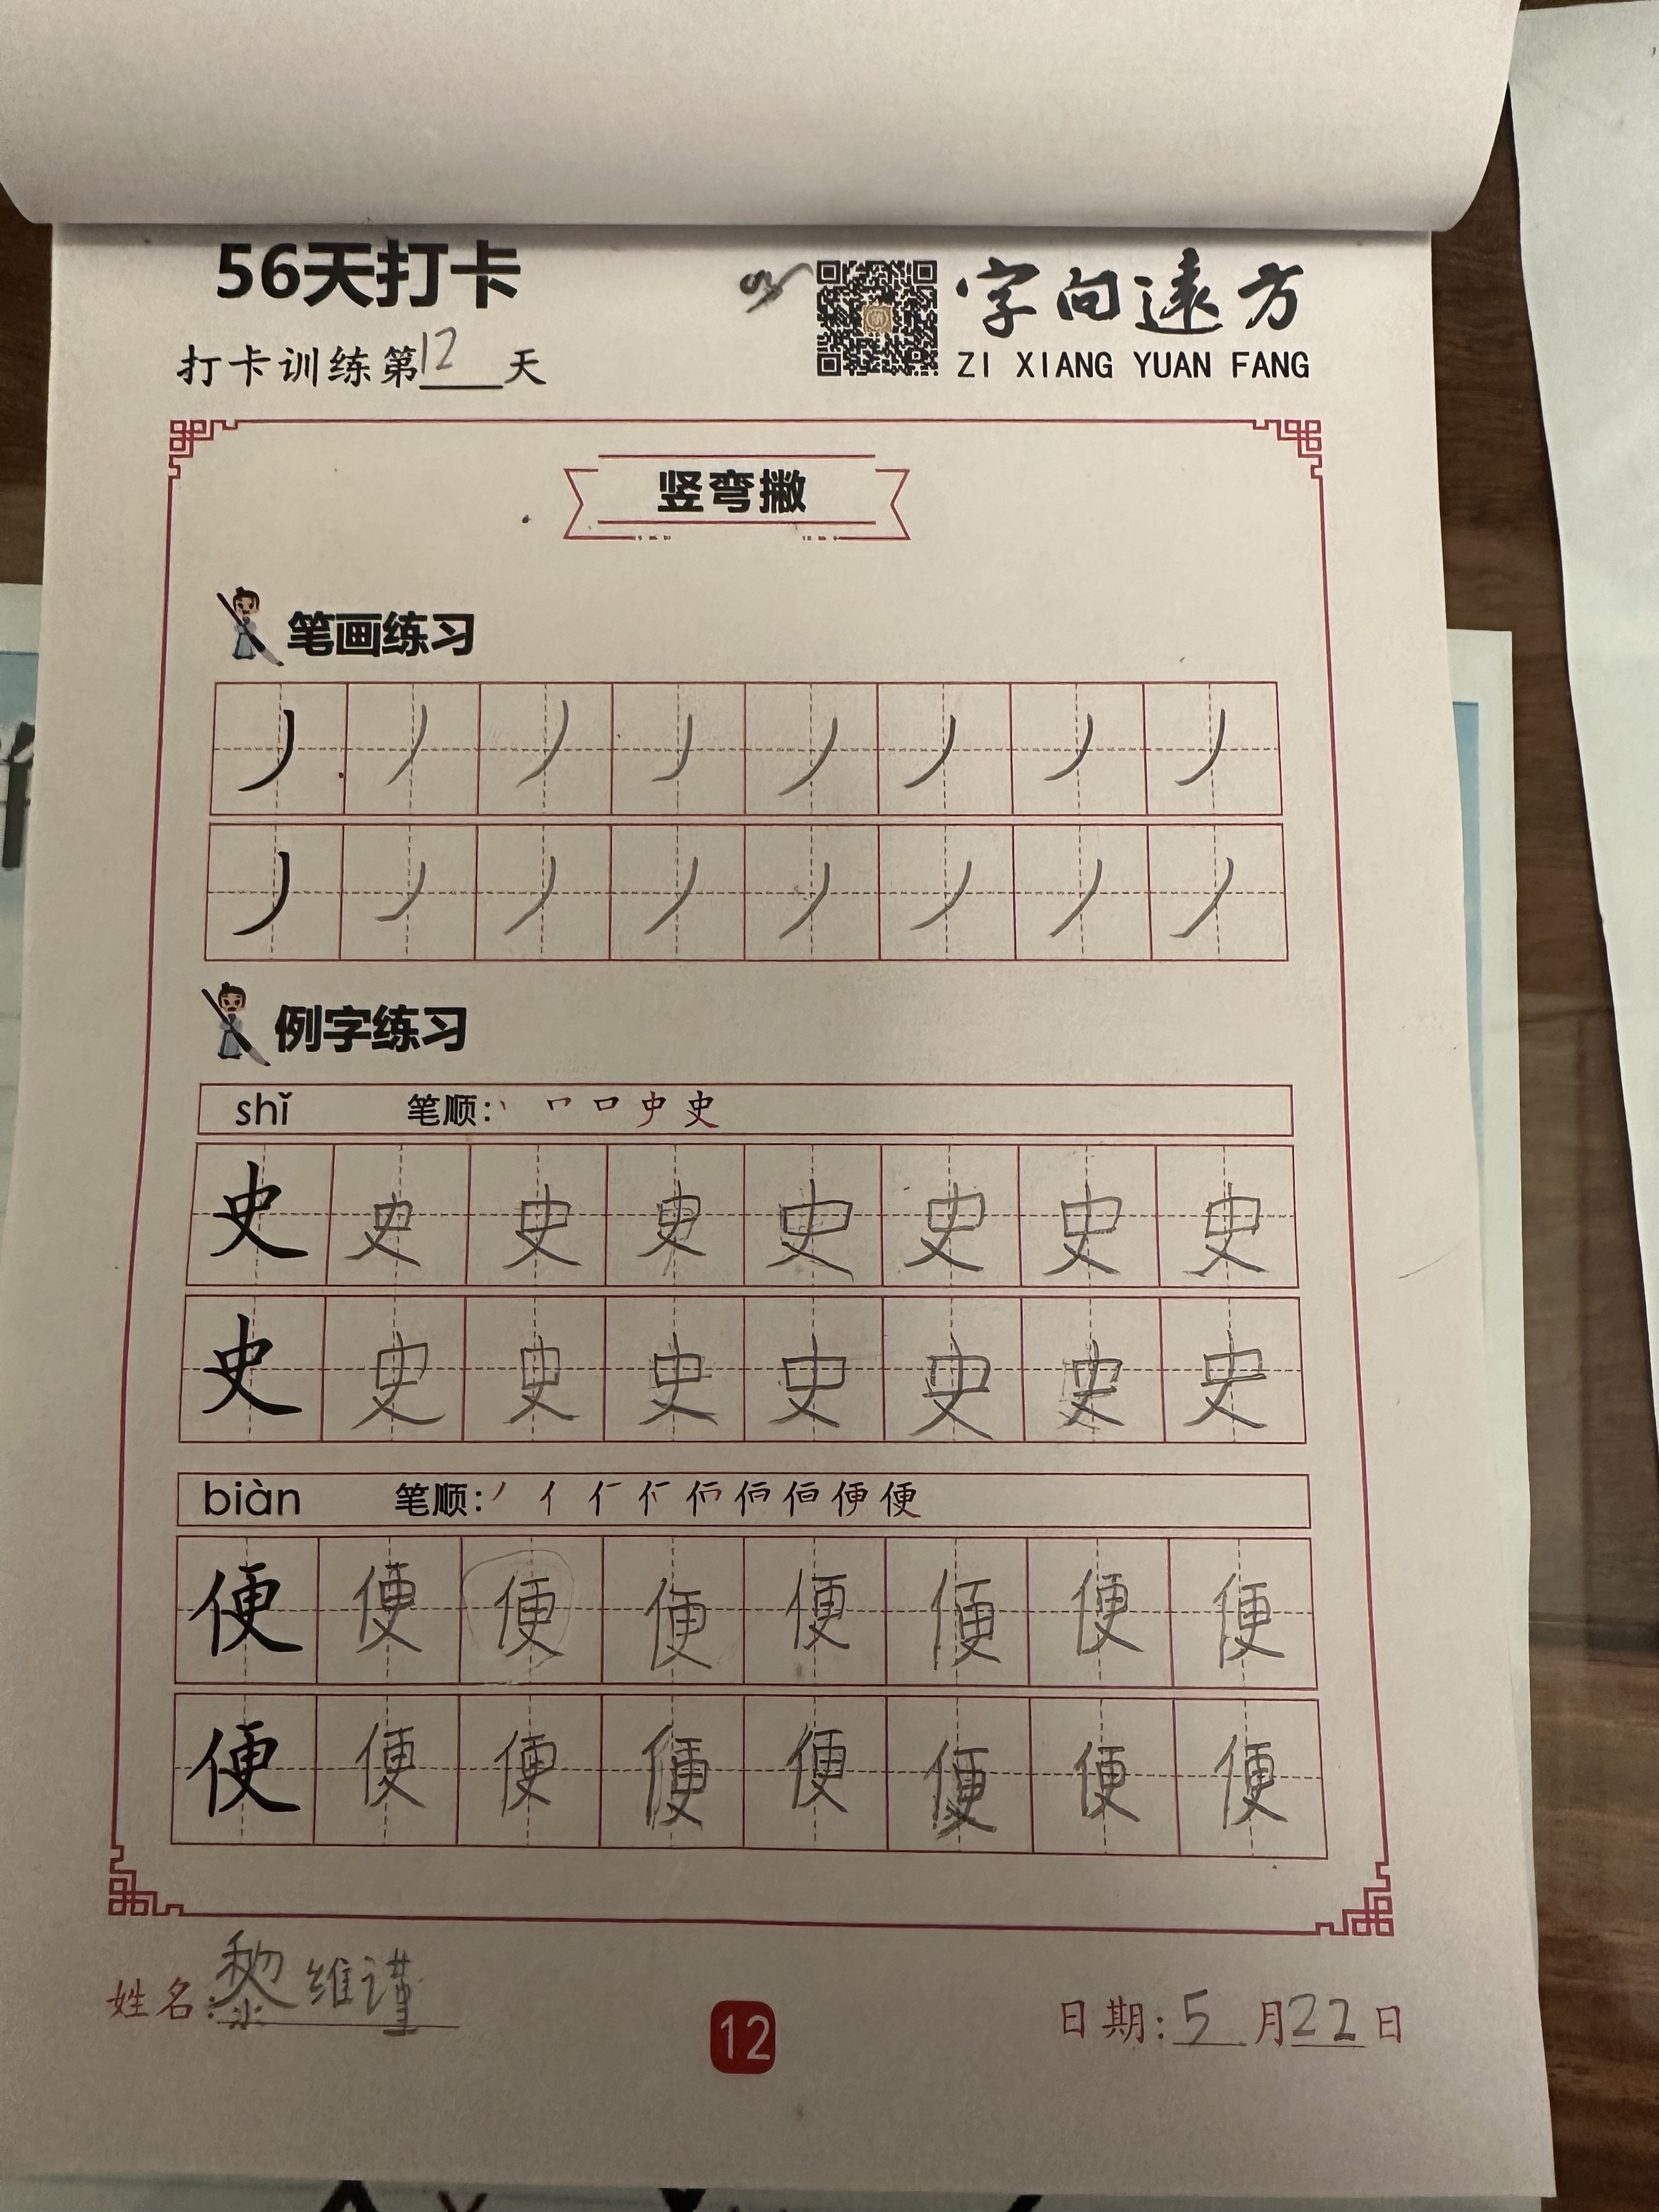 56天打卡
字向遠方
打卡训练第12天
ZI XIANG YUAN FANG
竖弯撇
笔画练习
丿 丿 丿 丿 丿 丿 丿 丿
丿 丿 丿 丿 丿 丿 丿 丿
例字练习
shǐ 笔顺: 丨 𠃍 口 史 史
史 史 史 史 史 史 史 史
史 史 史 史 史 史 史 史
biàn 笔顺:
便 便 便 便 便 便 便 便
便 便 便 便 便 便 便 便
姓名:黎维谨
12
日期:5月22日